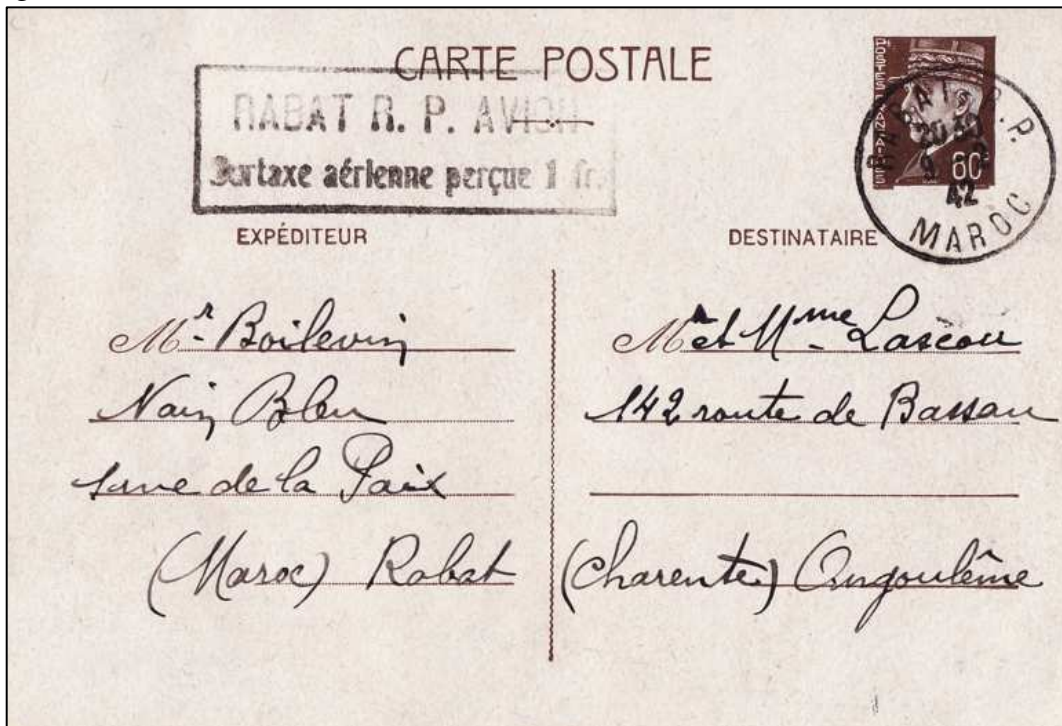 CARTE POSTALE
RABAT R. P. AVION
Surtaxe aérienne perçue 1 fr.
POSTES FRANÇAISES
80
RABAT R.P.
20 30
9
42
MAROC
EXPÉDITEUR
DESTINATAIRE
Mr. Boilevin
Nain Bleu
rue de la Paix
(Maroc) Rabat
Mr et Mme Lascou
142 route de Bassau
(Charente) Angoulême